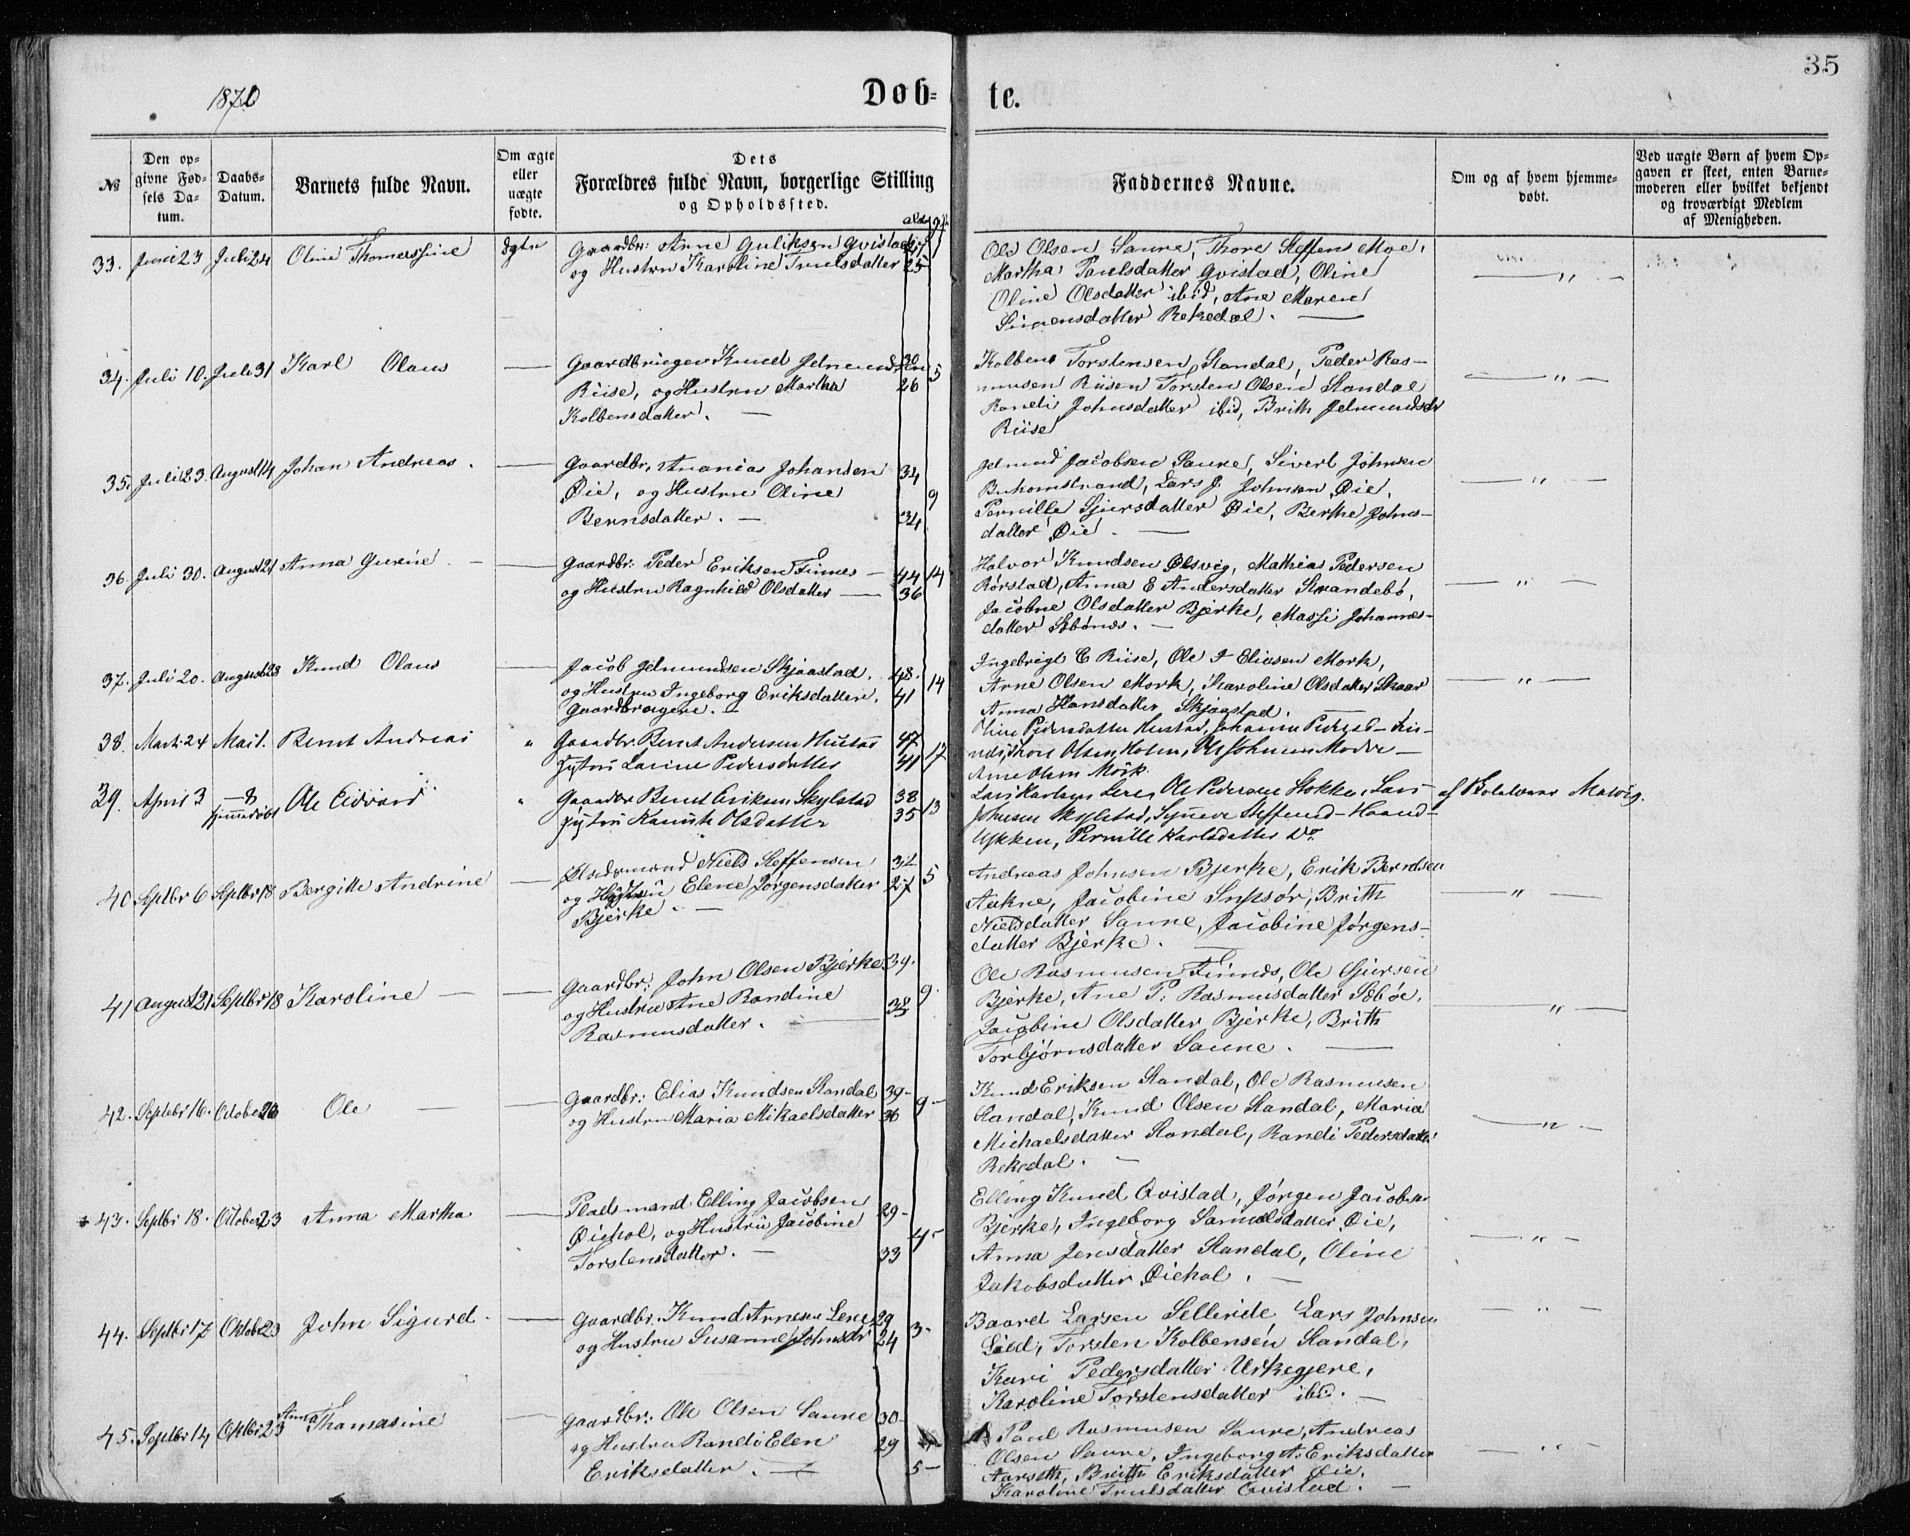 35
1870
Døb-
te.
№
Den op-
givne Fød-
sels Da-
tum.
Daabs-
Datum.
Barnets fulde Navn.
Om ægte
eller
uægte
fødte.
Dets
Forældres fulde Navn, borgerlige Stilling
og Opholdssted.
Faddernes Navne.
Om og af hvem hjemme-
døbt.
Ved uægte Børn af hvem Op-
gaven er skeet, enten Barne-
moderen eller hvilket bekjendt
og troværdigt Medlem
af Menigheden.
33. Juni 23 Juli 24 Oline Thomassine
Gaardbr: Arne Guliksen Qvistad
og Hustru Karoline Truulsdatter 25
Ole Olsen Saure, Thore Steffens Moe,
Martha Paulsdatter Qvistad, Oline
Oline Olsdatter ibid, Ane Maren
Simensdatter Rekedal. —
34. Juli 10. Juli 31 Karl Olaus —
Gaardbruger Knud Jetmundsen 30
Riise, og Hustru Martha 26 5
Kolbensdatter. —
Kolben Torstensen Standal, Peder Ras-
musen Riisen Torsten Olsen Standal
Randi Johnsdatter ibid, Brith Jetmundsdr
Riise
— " —
35. Juli 23. August 14 Johan Andreas. —
Gaardbr. Ananias Johansen 34
Øie, og Hustru Oline 9
Berntsdatter. — 34
Jetmund Jacobsen Saure, Sivert Johnsen
Buholmstrand, Lars J. Johnsen Øie,
Pernille Sjursdatter Øie, Berthe Johns-
datter Øie. —
— " —
36. Juli 30. August 21 Anna Gurine —
Gaardbr: Peder Eriksen Finnes — 44 14
og Hustru Ragnhild Olsdatter — 36
Halvor Knudsen Ølsvig, Mathias Pedersen
Rørstad, Anna E Andersdatter Strandebø,
Jacobine Olsdatter Bjerke, Massi Johannes-
datter Sæbønes. —
— " —
37. Juli 20. August 28 Knud Olaus —
Jacob Jetmundsen Skjaastad. 48.
og Hustru Ingeborg Eriksdatter. 41 14
Gaardbrugere. —
Ingebrigt E Riise, Ole I Eliasen Mork,
Arne Olsen Mork, Karoline Olsdatter Skaar
Anna Hansdatter Skjaastad.
— " —
38. Marts 24 Mai 1. Bernt Andreas "
Gaardbr. Bernt Andersen Hustad 47
Hustru Larine Pedersdatter 41 17
Oline Pedersdatter Hustad, Johanne
Olsen Holen, Ole Johnsen Modve —
Arne Olsen Mork.
39. April 3 — 8
hjemmedøbt
Ole Edvard "
Gaardbr Bernt Eriksen Skylstad 38
Hustru Olsdatter 35 13
Lars Karlsen Leren, Ole Pedersen Stokke, Lars
Johnsen Skylstad, Synneve Steffensd
Pernille Karlsdatter Do
40. Septbr 6 Septbr 18 Bergitte Andrine —
Pladsmand Niels Steffensen 32
og Hustru Elene Jørgensdatter 27 5
Bjerke. —
Andreas Johnsen Bjerke, Erik Berndsen
Aakne, Jacobine Birksør, Brith
Nielsdatter Saure, Jacobine Jørgens-
datter Bjerke. —
— " —
41 August 21 Septbr 18 Karoline — —
Gaardbr: John Olsen Bjerke 39.
og Hustru Ane Randine 38 9.
Rasmusdatter. —
Ole Rasmusen Finnes, Ole Sjursen
Bjerke, Ane P. Rasmusdatter Sæbøe,
Jacobine Olsdatter Bjerke, Brith
Torbjørnsdatter Saure. —
— " —
42. Septbr 16. October 23 Ole — —
Gaardbr: Elias Knudsen Standal 39-
og Hustru Maria Mikaelsdatter 36 9-
Knud Eriksen Standal, Ole Rasmusen
Standal, Knud Olsen Standal, Maria
Michaelsdatter Standal, Randi Pedersdatter
Rekedal. —
— " —
43. Septbr 18. October 23 Anna Martha —
Pladsmand Elling Jacobsen 29-
Øiehol, og Hustru Jacobine 4-
Torstensdatter. — 33
Elling Knud Qvistad, Jørgen Jacobsen
Bjerke, Ingeborg Samuelsdatter Øie,
Anna Jensdatter Standal, Oline
Jakobsdatter Øiehol. —
— " —
44. Septbr 17 Oktober 23 John Sigurd. —
Gaardbr. Knud Arnesen Leren 29
og Hustru Susanne Johnsdr 24 3-
Baard Larsen Selleride, Lars Johnsen
Lied, Torsten Kolbensen Standal,
Kari Pedersdatter Urkegjere,
Karoline Torstensdatter ibid. —
— " —
45. Septbr 14 Oktbr 23 Anna Thomasine —
Gaardbr: Ole Olsen Saure 30-
og Hustru Randi Elen 29
Eriksdatter. — 5-
Paul Rasmusen Saure, Andreas
Olsen Saure, Ingeborg A. Eriksdatter
Aarseth, Brith Eriksdatter Øie,
Karoline Truulsdatter Qvistad. —
— " —